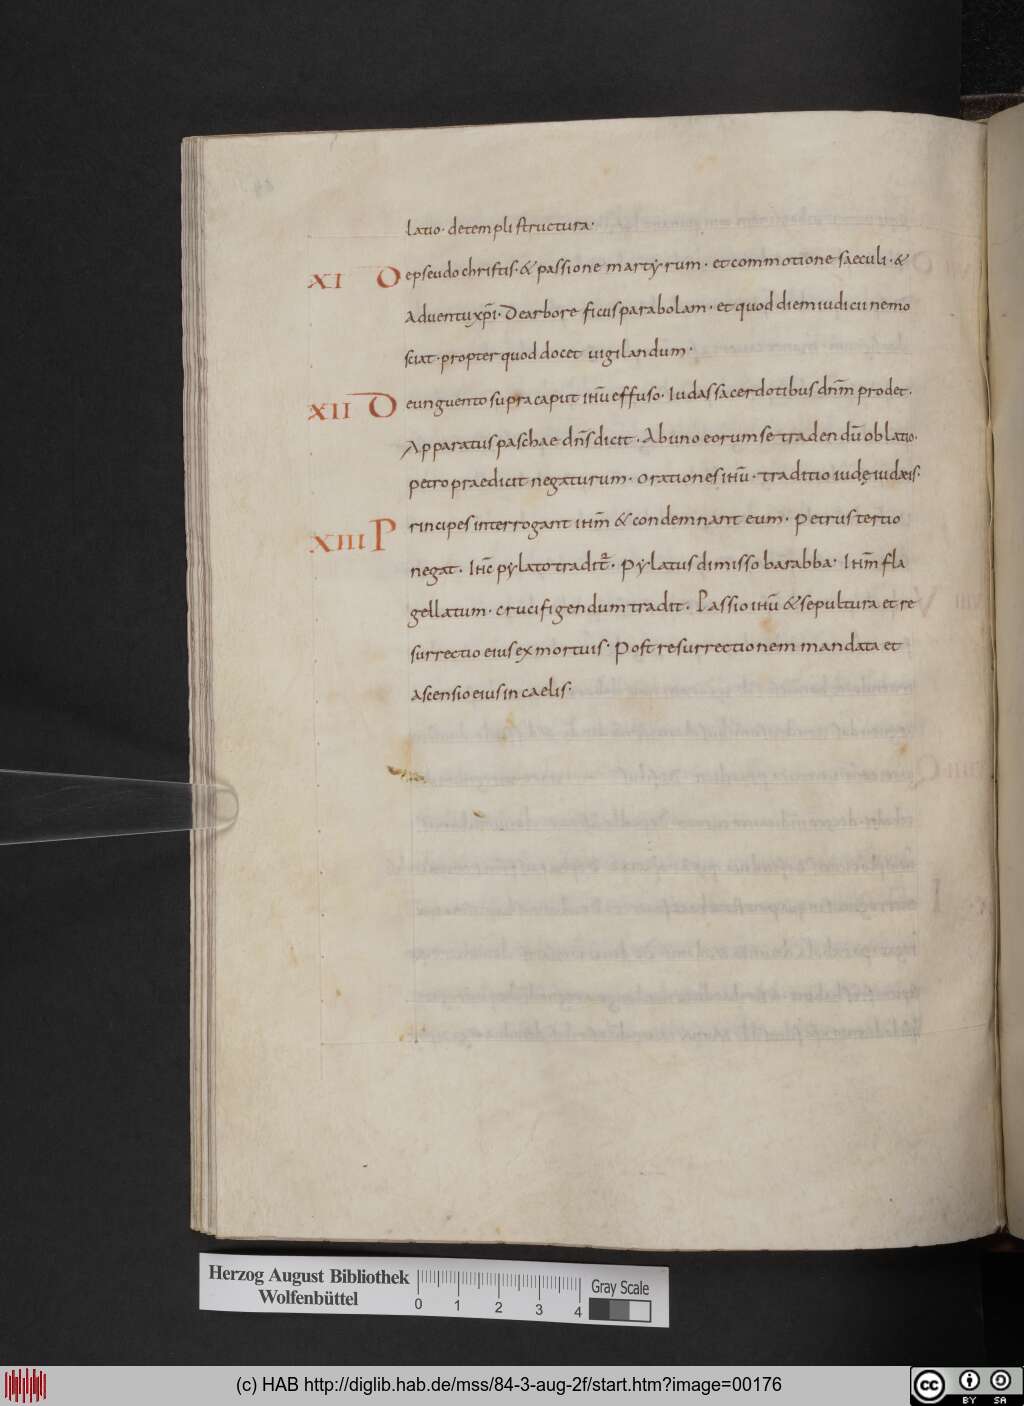 latio· detempli structura·
XI Depseudochristis· & passione martyrum· et commotione saeculi· &
aduentu xp̄i· Dearbore ficus parabolam· et quod diem iudicii nemo
sciat· propter quod docet uigilandum·
XII Deunguento supra caput ih̄u effuso· Iudas sacerdotibus dn̄m prodet·
Apparatus paschae dn̄s dicit· Ab uno eorum se tradendū oblatio·
petro praedicit negaturum· orationes ih̄u· traditio iudę iudæis·
XIII Principes interrogant ih̄m & condemnant eum· petrus tertio
negat· Ih̄c pylato tradit᷑· Pylatus dimisso barabba· Ih̄m fla
gellatum· crucifigendum tradit· Passio ih̄u & sepultura et re
surrectio eius ex mortuis· Post resurrectionem mandata et
ascensio eius in caelis·
Herzog August Bibliothek
Wolfenbüttel
0 1 2 3 4
Gray Scale
(c) HAB http://diglib.hab.de/mss/84-3-aug-2f/start.htm?image=00176
cc BY SA